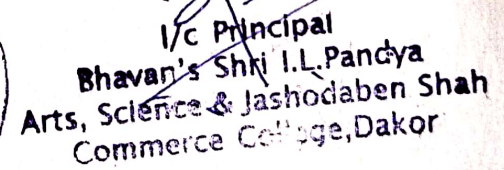 I/c Principal
Bhavan's Shri I.L.Pandya
Arts, Science & Jashodaben Shah
Commerce College,Dakor